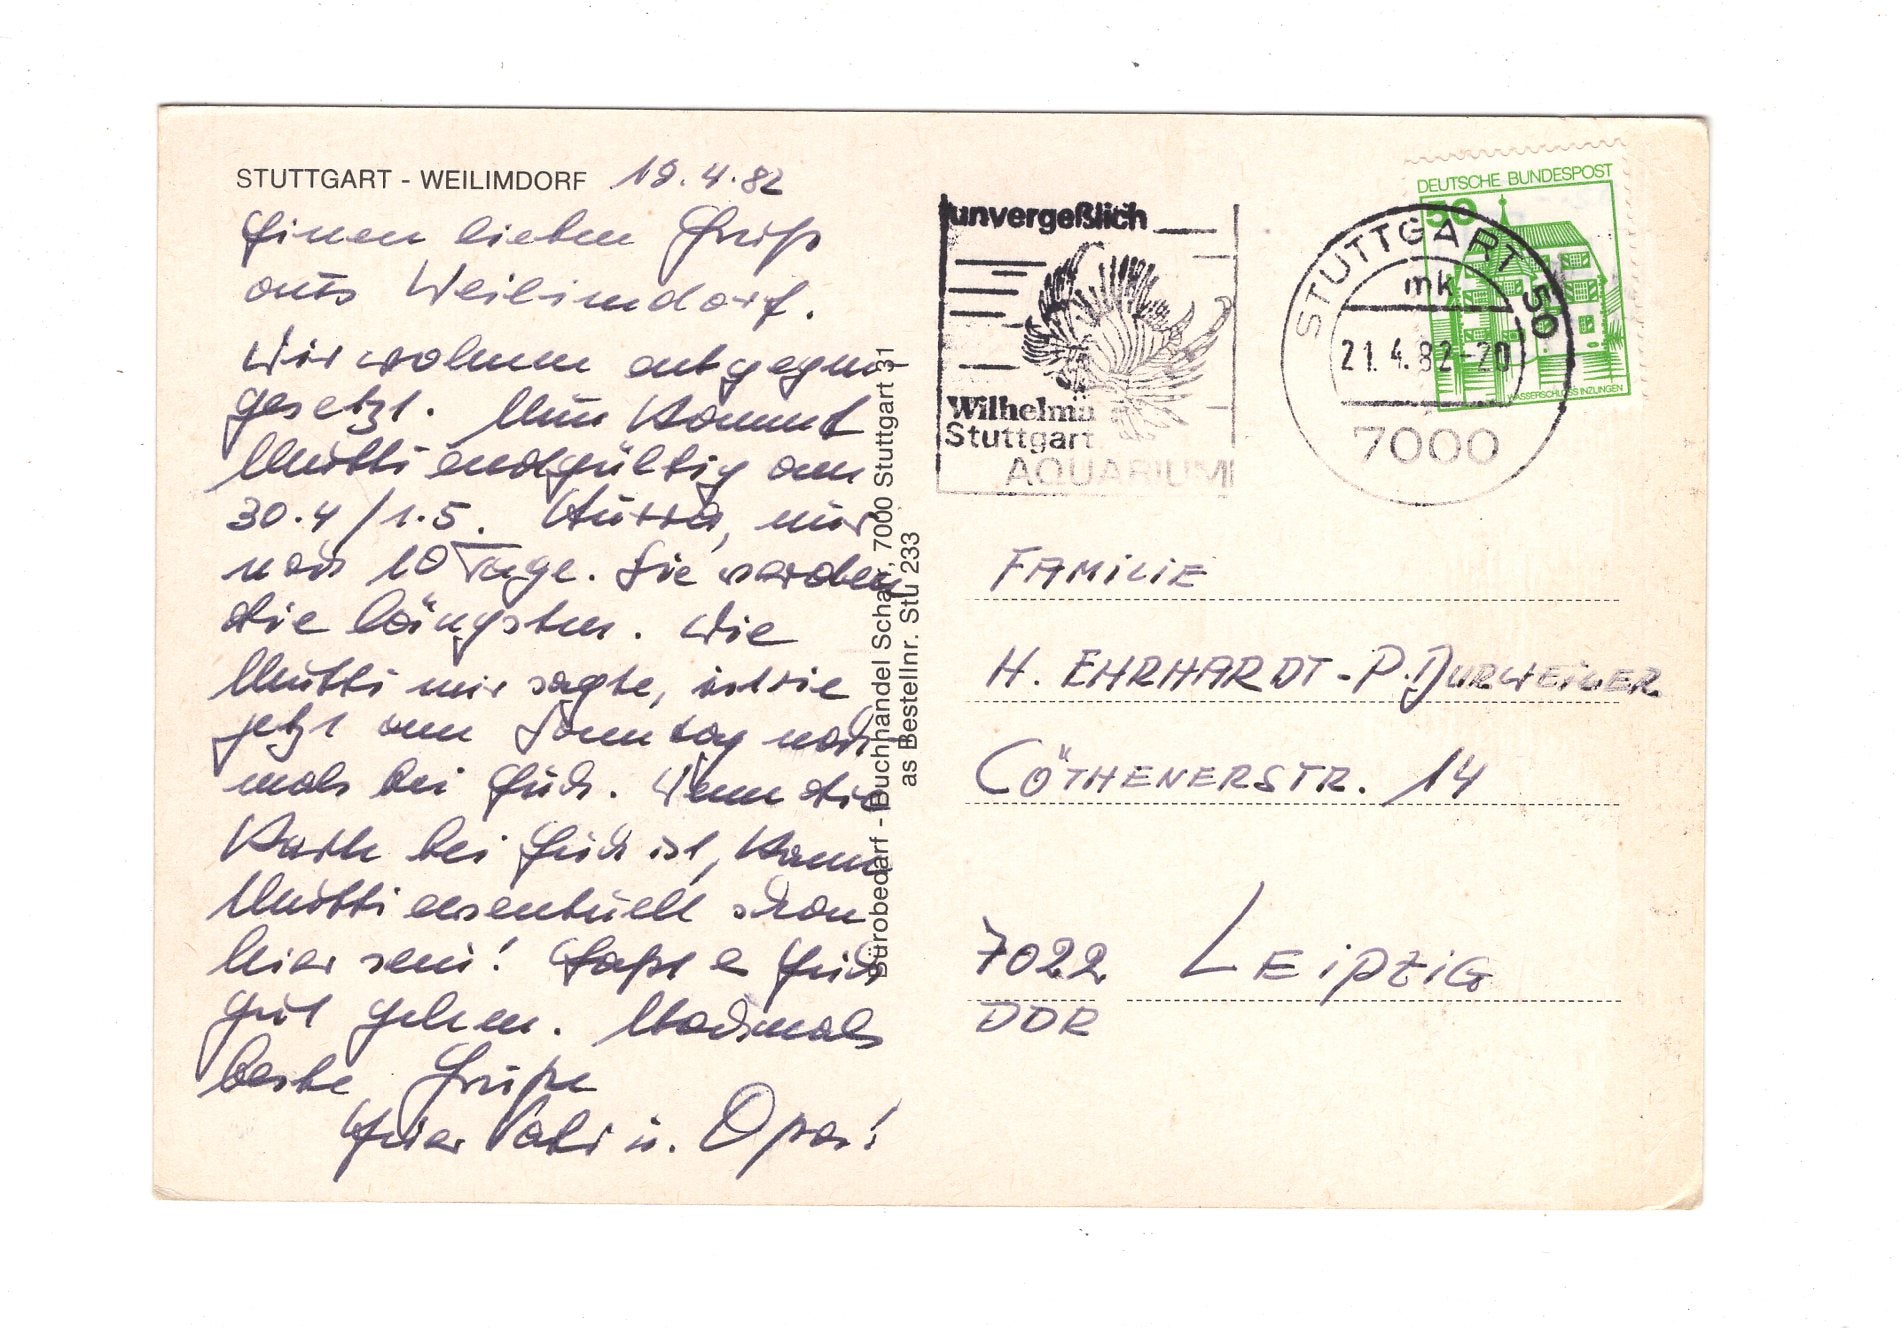 STUTTGART - WEILIMDORF 19.4.82
Einen lieben Gruß
aus Weilimdorf.
Wir wohnen entgegen
gesetzt. Nun kommt
Mutti endgültig am
30.4/1.5. Hurra, nur
noch 10 Tage. Sie werden
die längsten. Wie
Mutti mir sagte, ist sie
jetzt am Sonntag noch
mals bei Euch. Wenn die
Karte bei Euch ist, kann
Mutti eventuell schon
hier sein! Laßt es Euch
gut gehen. Nochmals
beste Grüße
Euer Vati u. Opa!
Bürobedarf - Buchhandel Schairer, 7000 Stuttgart 31
as Bestellnr. Stu 233
unvergeßlich
Wilhelma
Stuttgart
AQUARIUM
STUTTGART 50
mk
21.4.82-20
7000
DEUTSCHE BUNDESPOST
50
WASSERSCHLOSS INZLINGEN
FAMILIE
H. EHRHARDT - P. DURWEILER
CÖTHENERSTR. 14
7022 LEIPZIG
DDR